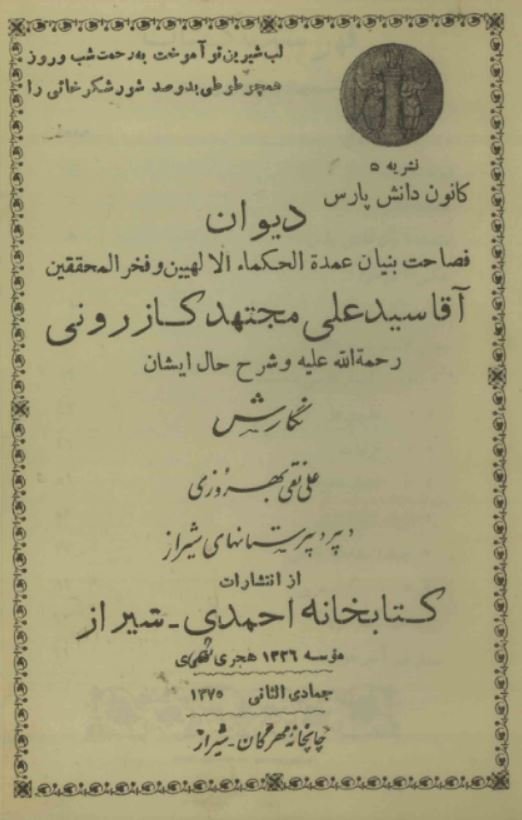 لب شیرین تو آموخت به رحمت شب و روز
همچو طوطی بدو صد شور شکر خائی را
نشریه ۵
کانون دانش پارس
دیوان
فصاحت بنیان عمدة الحکماء الالهیین و فخر المحققین
آقا سید علی مجتهد کازرونی
رحمة الله علیه و شرح حال ایشان
نگارش
علی نقی بهروزی
دبیر دبیرستانهای شیراز
از انتشارات
کتابخانه احمدی - شیراز
مؤسسه ۱۳۲۶ هجری قمری
جمادی الثانی ۱۳۷۵
چاپخانه مهرگان - شیراز